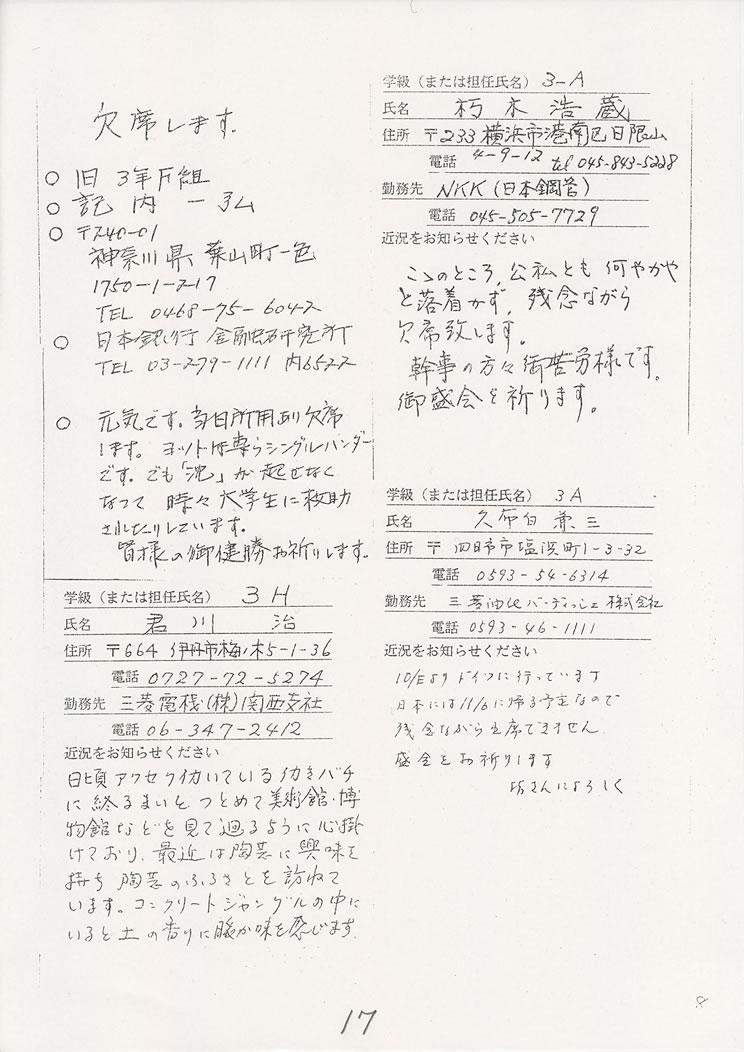 欠席します。
○ 旧 3年F組
○ 記 内 一 弘
○ 〒240-01
神奈川県 葉山町一色
1750-1-217
TEL 0468-75-6042
○ 日本銀行 金融研究所
TEL 03-279-1111 内6522
○ 元気です。当日所用あり欠席
します。ヨットは専らシングルハンダー
です。でも「沈」が起せなく
なって 時々大学生に救助
されたりしています。
皆様の御健勝お祈りします。
学級（または担任氏名） 3 H
氏名 君 川 治
住所 〒664 伊丹市梅ノ木5-1-36
電話 0727-72-5274
勤務先 三菱電機(株)関西支社
電話 06-347-2412
近況をお知らせください
日頃アクセク働いている働きバチ
に終るまいと つとめて美術館・博
物館などを見て廻るように心掛
けており、最近は陶芸に興味を
持ち 陶芸のふるさとを訪ねて
います。コンクリートジャングルの中に
いると土の香りに暖か味を感じます
学級（または担任氏名） 3-A
氏名 朽木 浩蔵
住所 〒233 横浜市港南区日限山
4-9-12 tel 045-843-5228
電話
勤務先 NKK (日本鋼管)
電話 045-505-7729
近況をお知らせください
このところ、公私とも 何やかや
と落着かず、残念ながら
欠席致します。
幹事の方々御苦労様です。
御盛会を祈ります。
学級（または担任氏名） 3A
氏名 久布白 兼三
住所 〒 四日市市塩浜町1-3-32
電話 0593-54-6314
勤務先 三菱油化バーディッシェ 株式会社
電話 0593-46-1111
近況をお知らせください
10/Eより ドイツに行っています
日本には11/6に帰る予定なので
残念ながら出席できません
盛会をお祈りします
坊さんによろしく
17
8